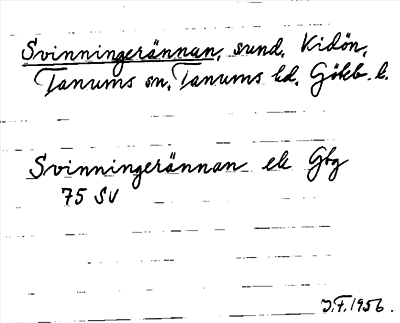 Svinningerännan, sund, Kidön,
Tanums sn, Tanums hd, Götebl. l.
Svinningerännan ek Gbg
75 SV
J.F. 1956.